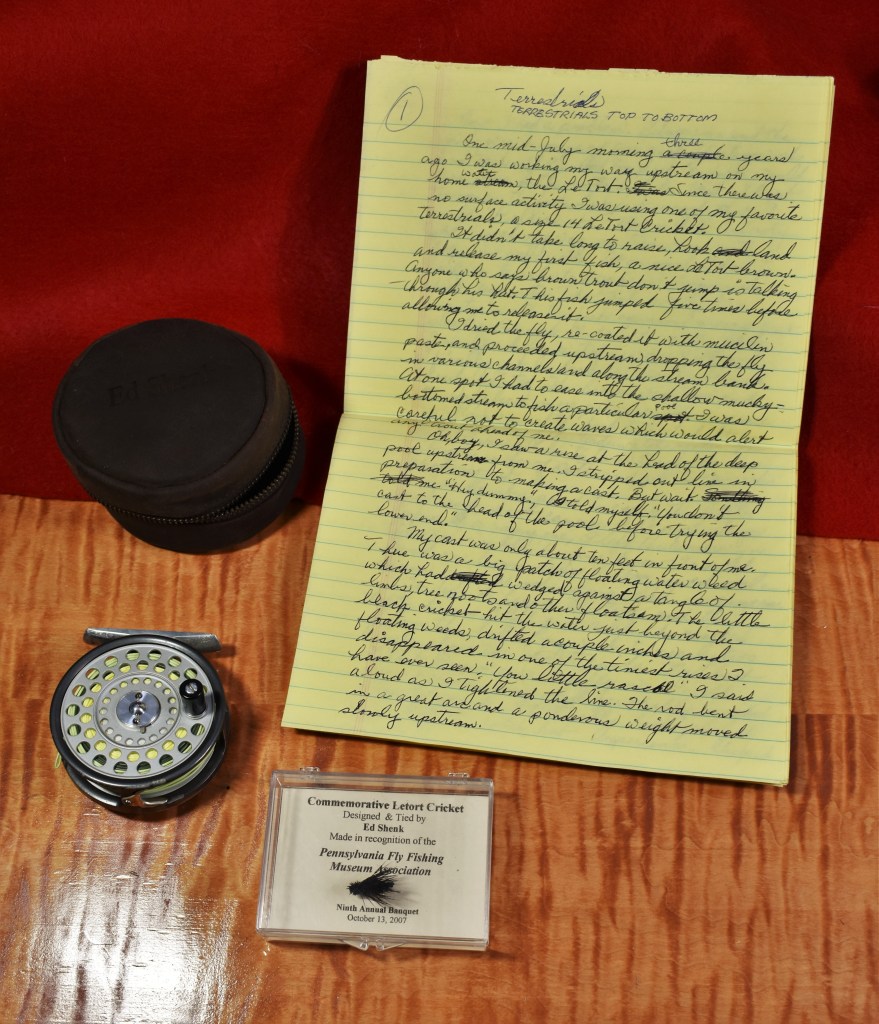 1
Terrestrials
TERRESTRIALS TOP TO BOTTOM
One mid-July morning a couple three years
ago I was working my way upstream on my
home stream water, the LeTort. It was Since there was
no surface activity I was using one of my favorite
terrestrials, a size 14 LeTort Cricket.
It didn't take long to raise, hook and land
and release my first fish, a nice LeTort brown.
Anyone who says brown trout don't jump is talking
through his hat. This fish jumped five times before
allowing me to release it.
I dried the fly, re-coated it with mucilin
paste, and proceeded upstream, dropping the fly
in various channels and along the stream bank.
At one spot I had to ease into the shallow mucky-
bottomed stream to fish a particular spot pool. I was
careful not to create waves which would alert
any trout ahead of me.
Oh boy, I saw a rise at the head of the deep
pool upstream from me. I stripped out line in
preparation to making a cast. But wait Something
told me "Hey dummy", I told myself, "You don't
cast to the head of the pool before trying the
lower end."
My cast was only about ten feet in front of me.
There was a big patch of floating water weed
which had wedged against a tangle of
limbs, tree roots and other floatsam. The little
black cricket hit the water just beyond the
floating weeds, drifted a couple inches and
disappeared in one of the tiniest rises I
have ever seen. "You little rascal" I said
aloud as I tightened the line. The rod bent
in a great arc and a ponderous weight moved
slowly upstream.
Commemorative Letort Cricket
Designed & Tied by
Ed Shenk
Made in recognition of the
Pennsylvania Fly Fishing
Museum Association
Ninth Annual Banquet
October 13, 2007